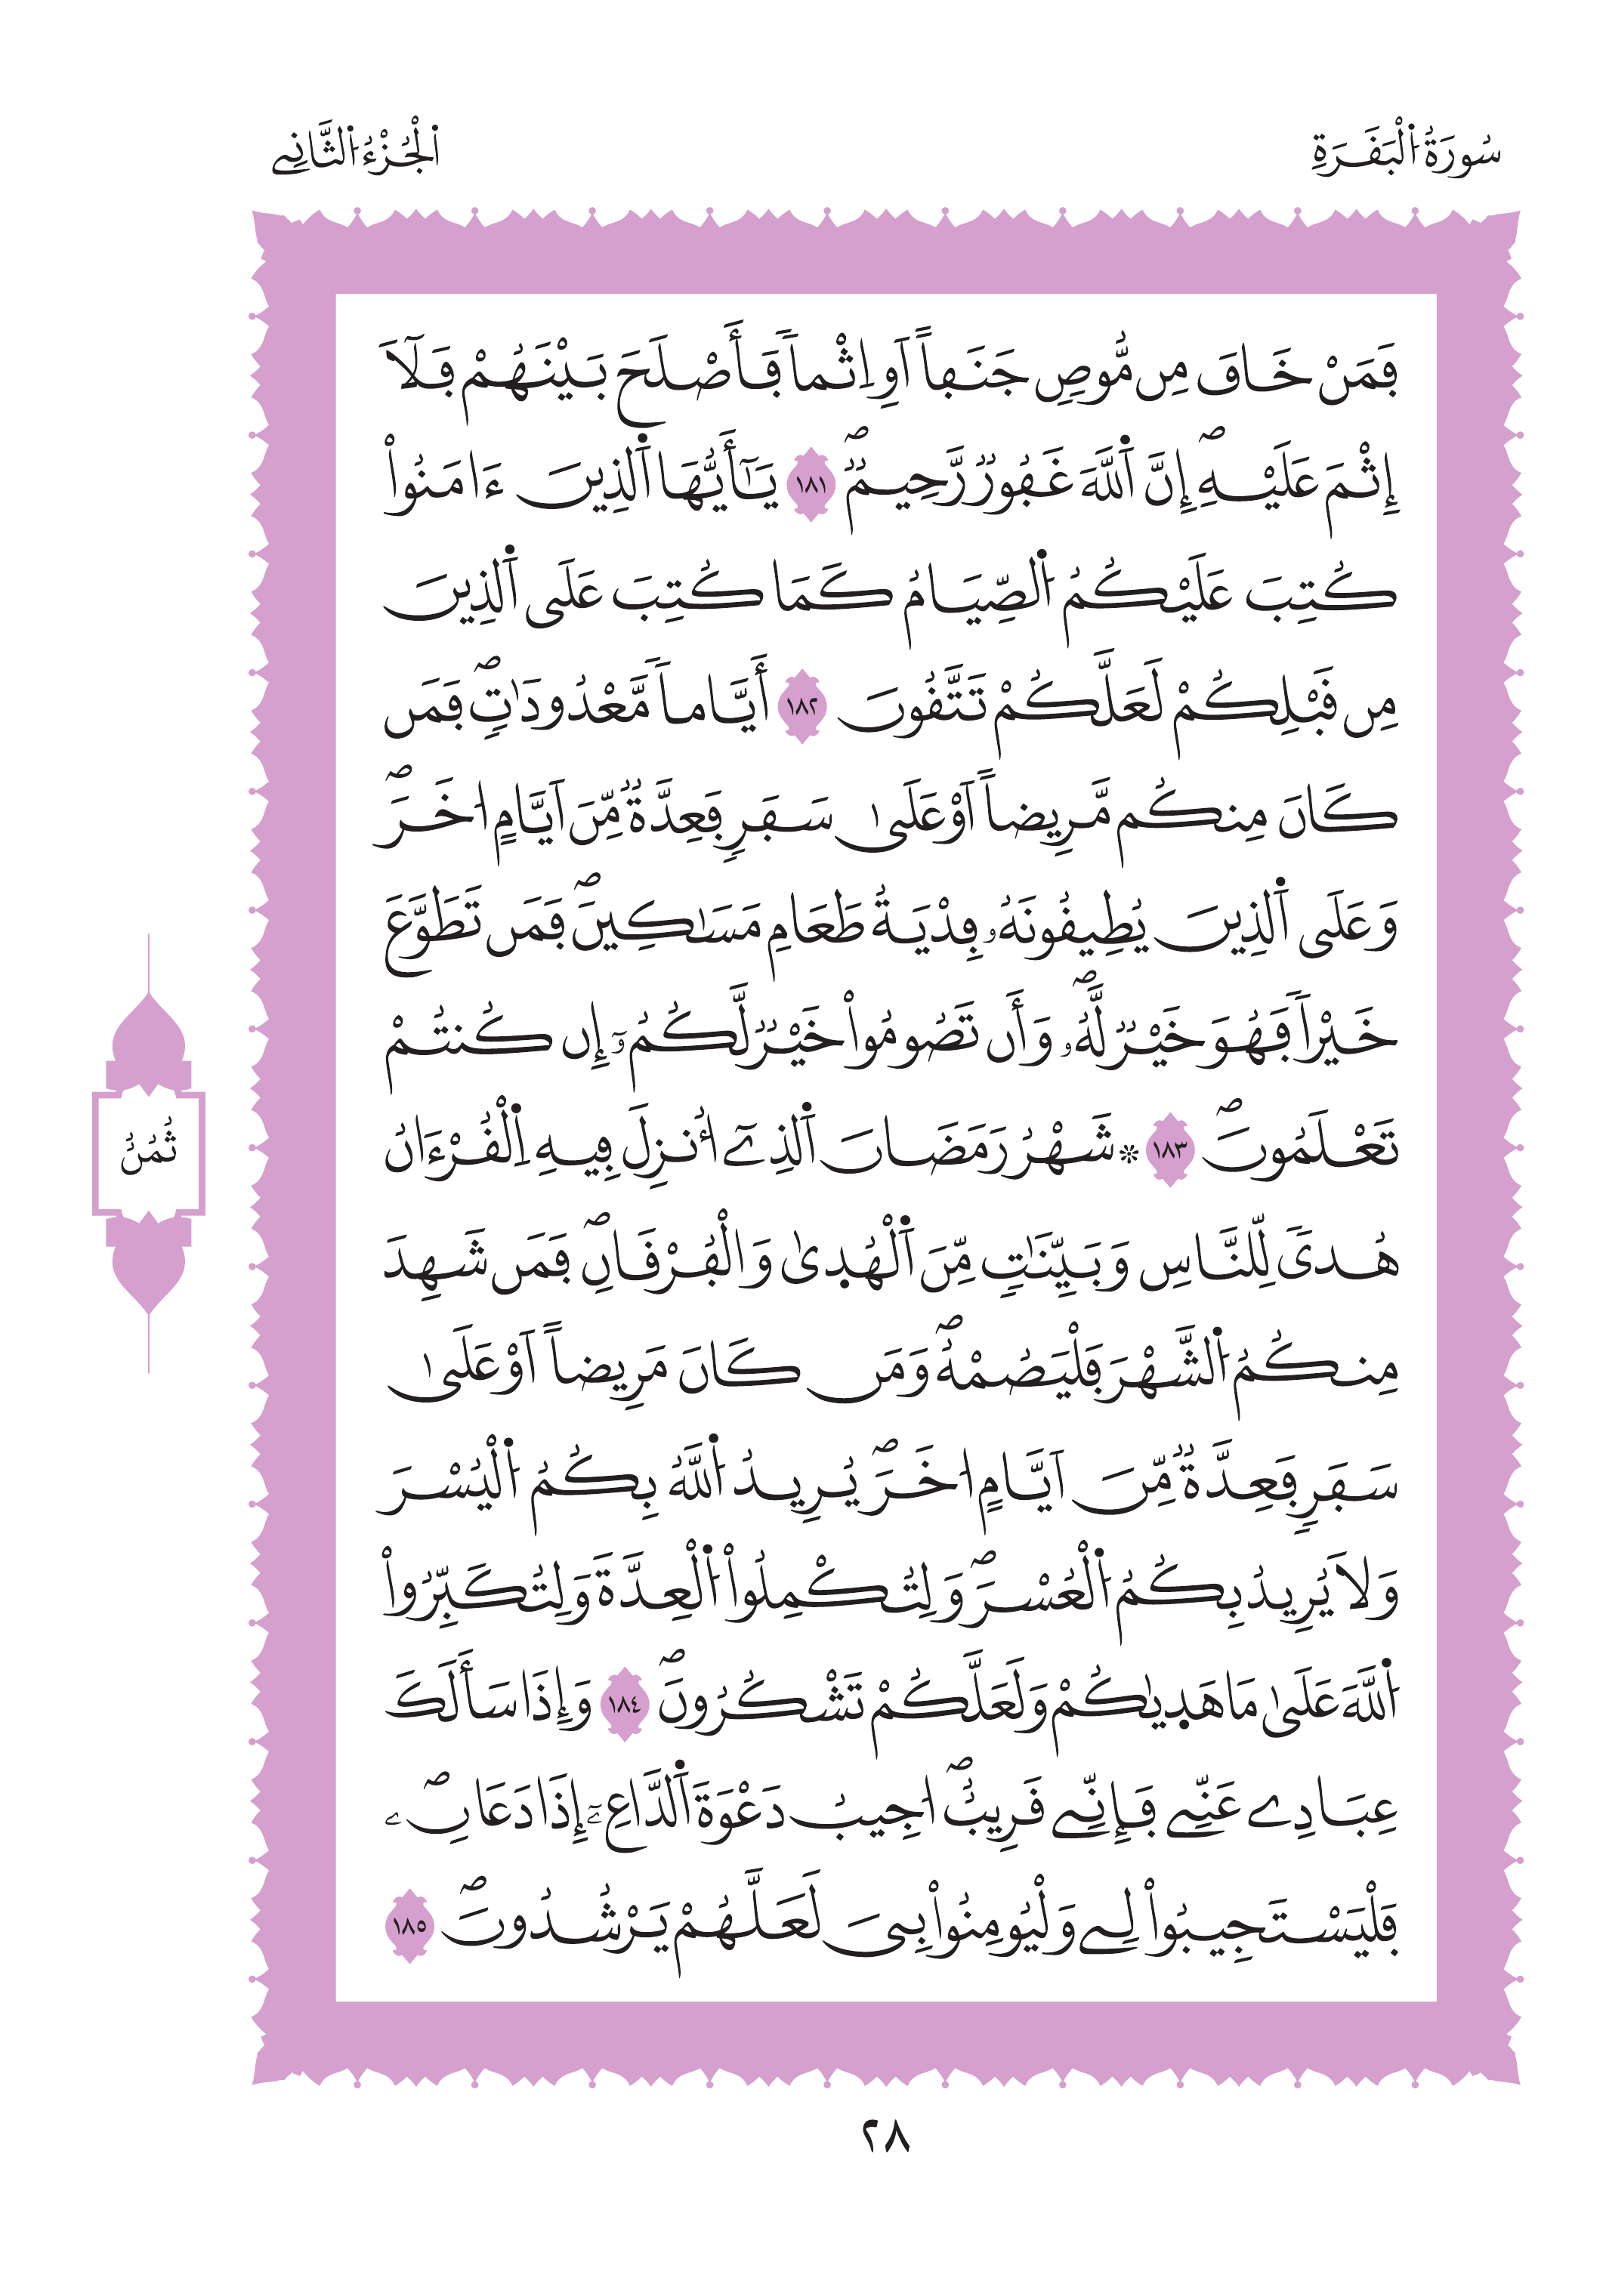 سُورَةُ اُ۬لْبَقَرَةِ
اَ۬لْجُزْءُ اُ۬لثَّانِے
فَمَنْ خَافَ مِن مُّوصٖ جَنَفاً اَوِ اِثْماٗ فَأَصْلَحَ بَيْنَهُمْ فَلَآ
إِثْمَ عَلَيْهِۖ إِنَّ اَ۬للَّهَ غَفُورٞ رَّحِيمٞۖ ١٨١ يَٰٓأَيُّهَا اَ۬لذِينَ ءَامَنُواْ
كُتِبَ عَلَيْكُمُ اُ۬لصِّيَامُ كَمَا كُتِبَ عَلَي اَ۬لذِينَ
مِن قَبْلِكُمْ لَعَلَّكُمْ تَتَّقُونَ ١٨٢ أَيَّاماٗ مَّعْدُودَٰتٖۖ فَمَن
كَانَ مِنكُم مَّرِيضاً اَوْ عَلَيٰ سَفَرٖ فَعِدَّةٞ مِّنَ اَيَّامٍ اُخَرَۖ
وَعَلَي اَ۬لذِينَ يُطِيقُونَهُۥ فِدْيَةُ طَعَامِ مَسَٰكِينَۖ فَمَن تَطَوَّعَ
خَيْراٗ فَهُوَ خَيْرٞ لَّهُۥۖ وَأَن تَصُومُواْ خَيْرٞ لَّكُمُۥٓ إِن كُنتُمْ
تَعْلَمُونَۖ ١٨٣ ۞ شَهْرُ رَمَضَانَ اَ۬لذِےٓ أُنزِلَ فِيهِ اِ۬لْقُرْءَانُ
هُديٗ لِّلنَّاسِ وَبَيِّنَٰتٖ مِّنَ اَ۬لْهُدٜيٰ وَالْفُرْقَانِۖ فَمَن شَهِدَ
مِنكُمُ اُ۬لشَّهْرَ فَلْيَصُمْهُۖ وَمَن كَانَ مَرِيضاً اَوْ عَلَيٰ
سَفَرٖ فَعِدَّةٞ مِّنَ اَيَّامٍ اُخَرَۖ يُرِيدُ اُ۬للَّهُ بِكُمُ اُ۬لْيُسْرَ
وَلَا يُرِيدُ بِكُمُ اُ۬لْعُسْرَۖ وَلِتُكْمِلُواْ اُ۬لْعِدَّةَ وَلِتُكَبِّرُواْ
اُ۬للَّهَ عَلَيٰ مَا هَدٜيٰكُمْ وَلَعَلَّكُمْ تَشْكُرُونَۖ ١٨٤ وَإِذَا سَأَلَكَ
عِبَادِے عَنِّے فَإِنِّے قَرِيبٌۖ اُجِيبُ دَعْوَةَ اَ۬لدَّاعِۦٓ إِذَا دَعَانِۦۖ
فَلْيَسْتَجِيبُواْ لِے وَلْيُومِنُواْ بِيَ لَعَلَّهُمْ يَرْشُدُونَۖ ١٨٥
ثُمُنُ
٢٨